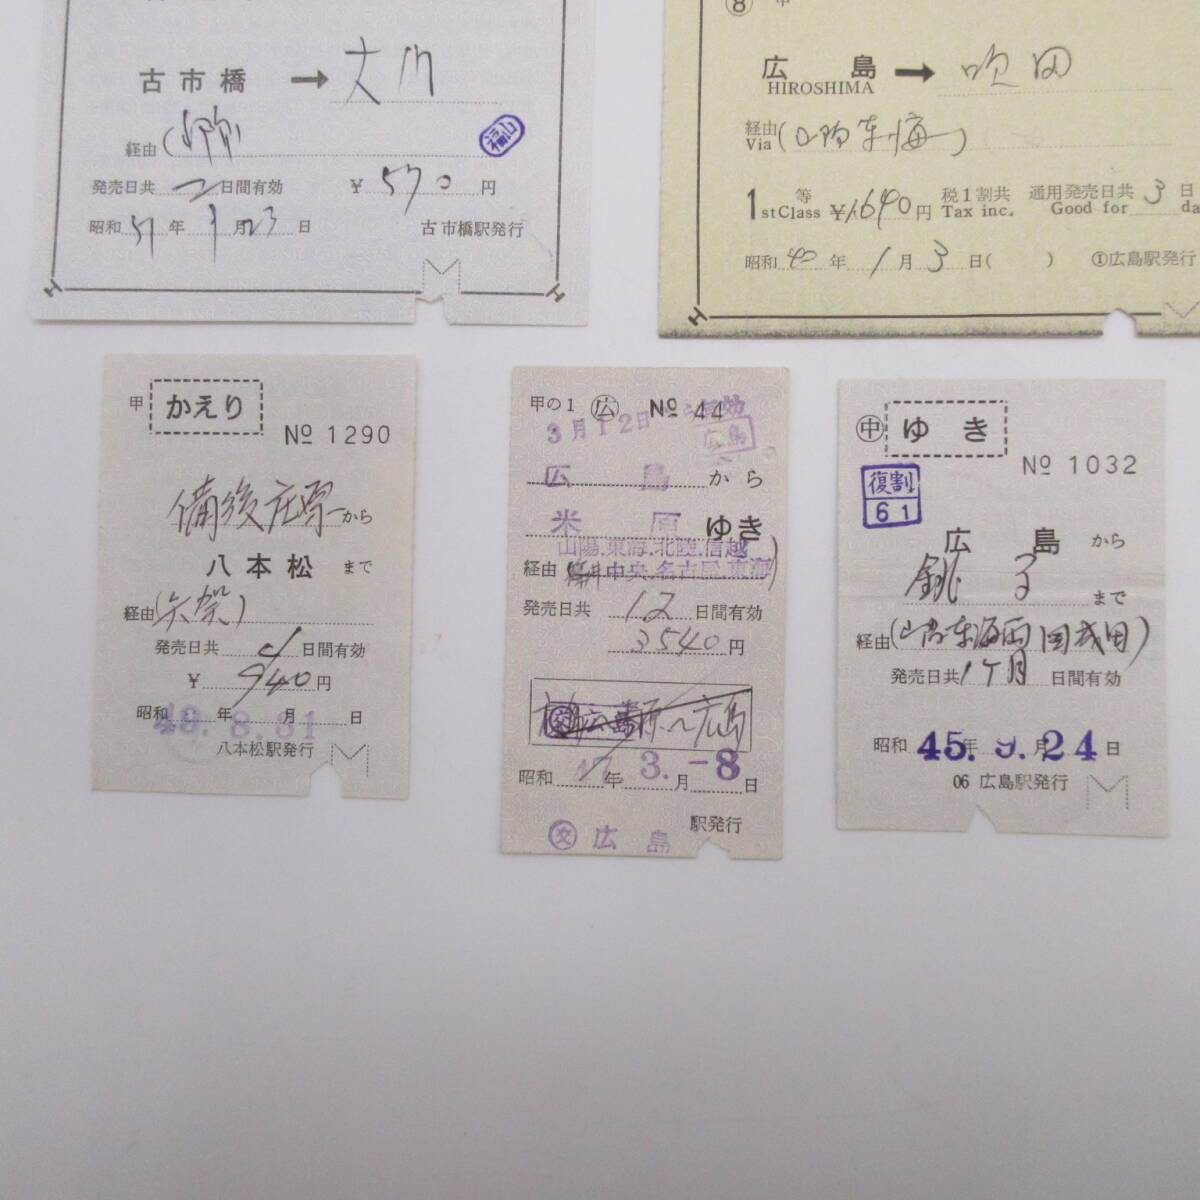 古市橋 → 大川
経由(
福山
発売日共 2 日間有効 ¥ 570 円
昭和 51 年 9 月 23 日 古市橋駅発行
⑧ 甲
広島 → 吹田
HIROSHIMA
経由 (山陽東海)
Via
1等 ¥1,640円 税1割共 通用発売日共 3 日
1st Class Tax inc. Good for da
昭和 40 年 1 月 3 日( ) ①広島駅発行
甲 かえり
№ 1290
備後庄原から
八本松まで
経由(矢賀)
発売日共 4 日間有効
¥ 940 円
昭和 49 年 8 月 31 日
八本松駅発行
甲の1 ㊄広 № 44
3月12日
広島
広島から
米原ゆき
山陽.東海.北陸.信越
経由 中央.名古屋.東海)
発売日共 12 日間有効
3540円
昭和 47 年 3 月 -8 日
駅発行
交 広島
㊥ ゆき
№ 1032
復割
61
広島から
銚子まで
経由(山陽東海両国成田)
発売日共 1ヶ月 日間有効
昭和 45 年 9 月 24 日
06 広島駅発行